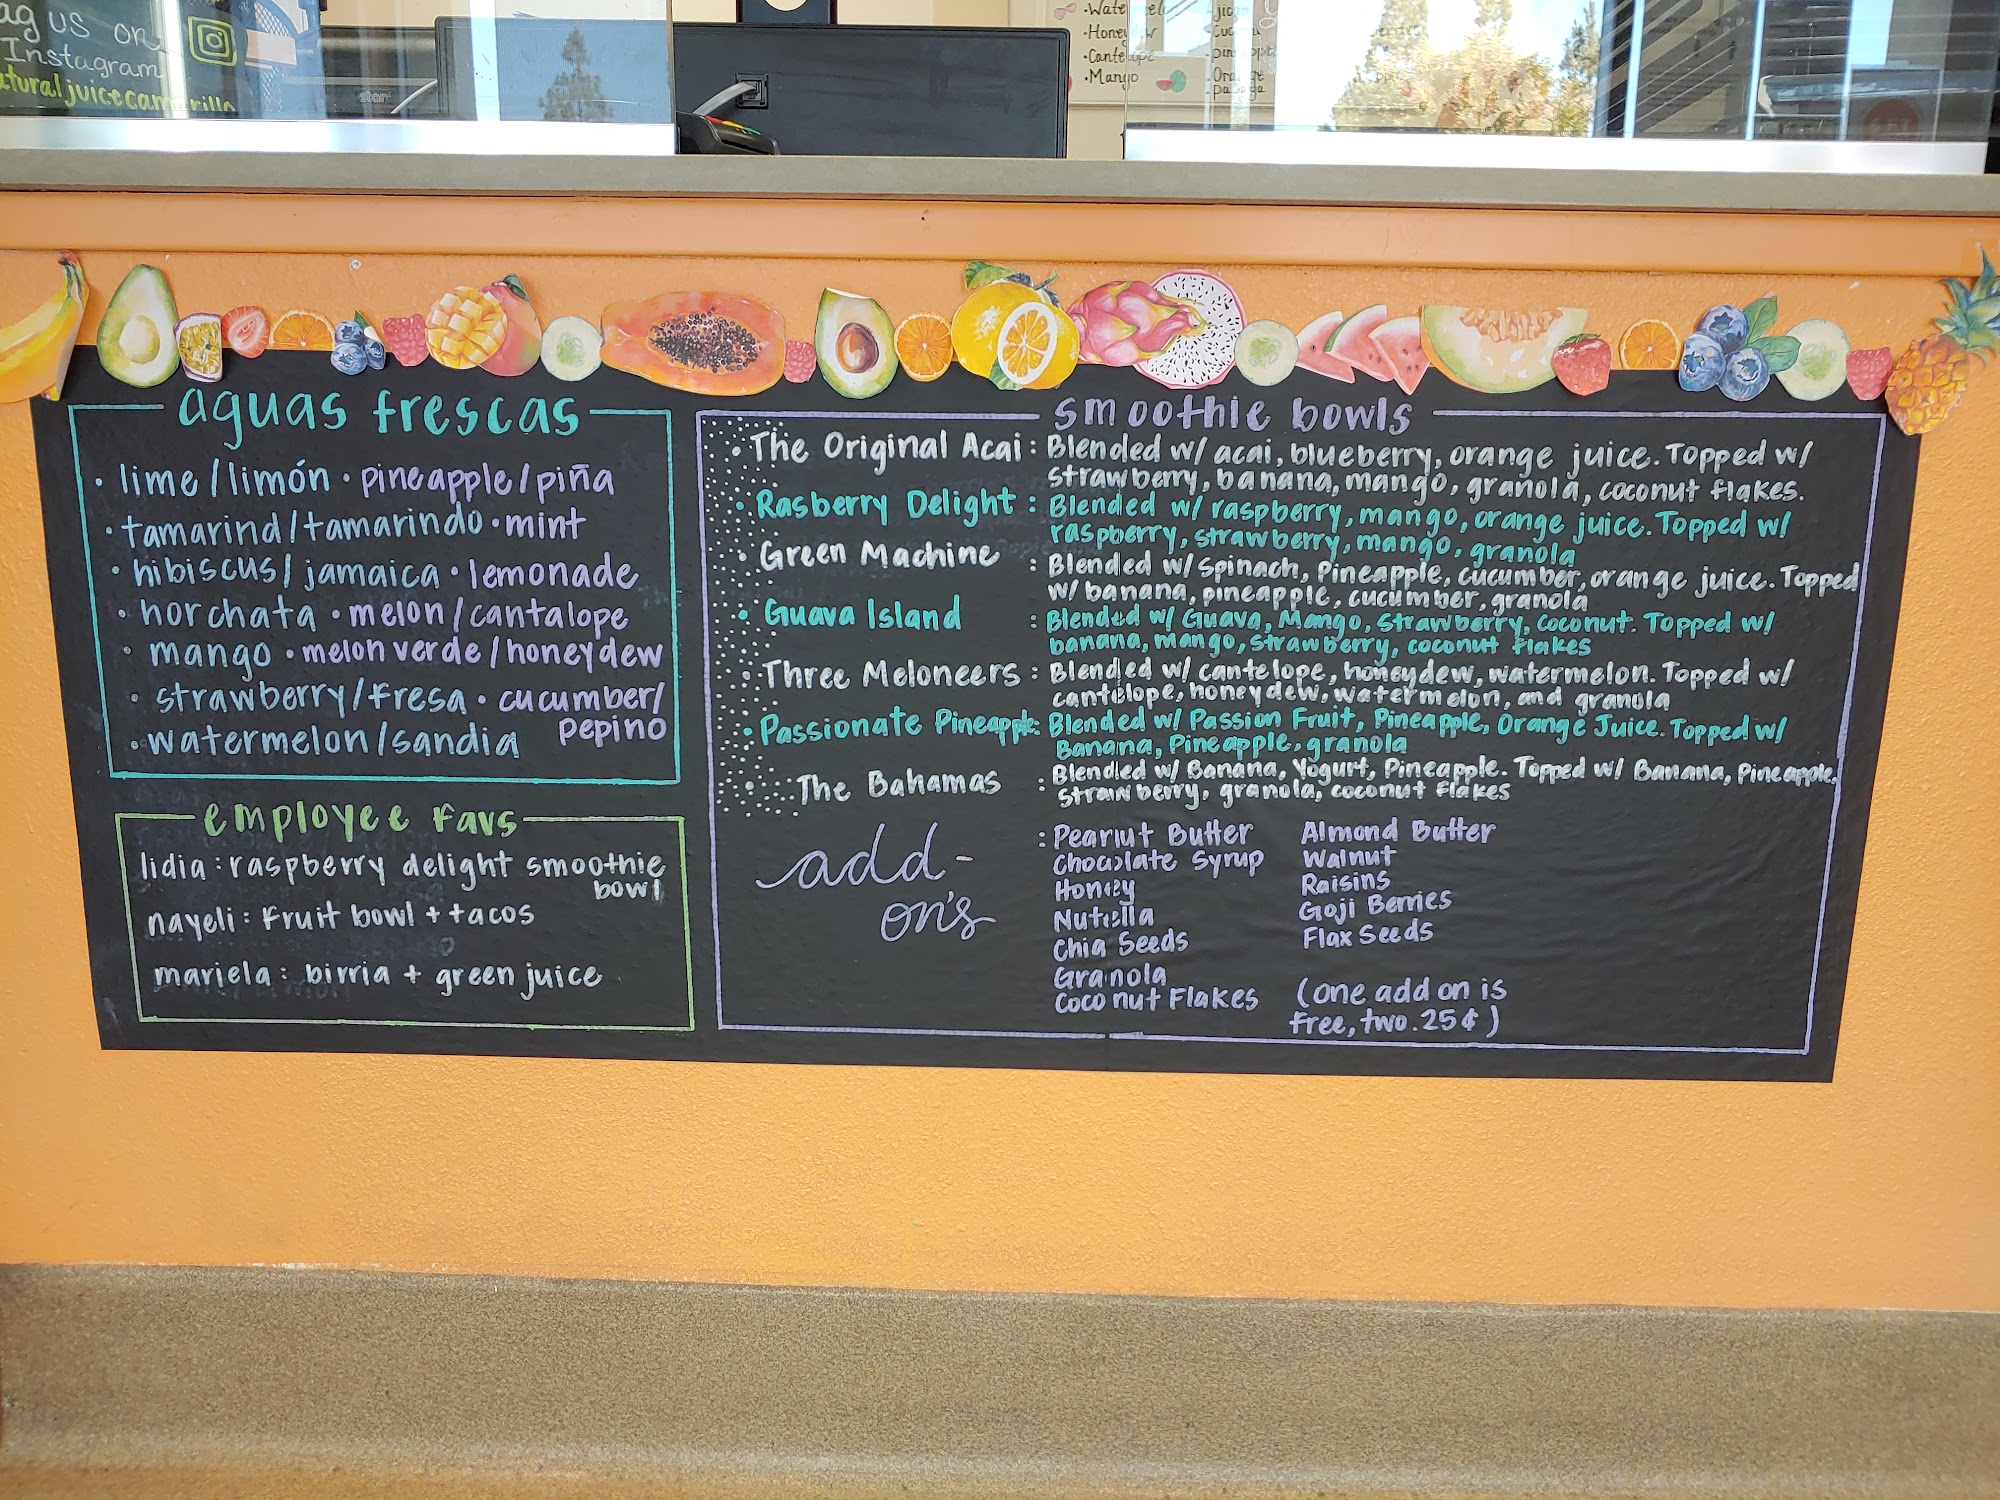 ag us on
Instagram
aturaljuicecamarillo
star
•Honeydew
•Cantelope
•Mango
aguas frescas
• lime/limón • pineapple/piña
• tamarind/tamarindo • mint
• hibiscus/jamaica • lemonade
• horchata • melon/cantalope
• mango • melon verde/honeydew
• strawberry/fresa • cucumber/
pepino
• watermelon/sandia
employee favs
lidia: raspberry delight smoothie
bowl
nayeli: fruit bowl + tacos
mariela: birria + green juice
smoothie bowls
• The Original Acai: Blended w/ acai, blueberry, orange juice. Topped w/
strawberry, banana, mango, granola, coconut flakes.
• Rasberry Delight: Blended w/ raspberry, mango, orange juice. Topped w/
raspberry, strawberry, mango, granola
• Green Machine : Blended w/ Spinach, Pineapple, cucumber, orange juice. Topped
w/ banana, pineapple, cucumber, granola
• Guava Island : Blended w/ Guava, Mango, Strawberry, coconut. Topped w/
banana, mango, strawberry, coconut flakes
• Three Meloneers: Blended w/ cantelope, honeydew, watermelon. Topped w/
cantelope, honeydew, watermelon, and granola
• Passionate Pineapple: Blended w/ Passion Fruit, Pineapple, Orange Juice. Topped w/
Banana, Pineapple, granola
• The Bahamas : Blended w/ Banana, Yogurt, Pineapple. Topped w/ Banana, Pineapple,
strawberry, granola, coconut flakes
add-
on's
: Peanut Butter Almond Butter
Chocolate Syrup Walnut
Honey Raisins
Nutella Goji Berries
Chia Seeds Flax Seeds
Granola
Coconut Flakes (one add on is
free, two .25¢)